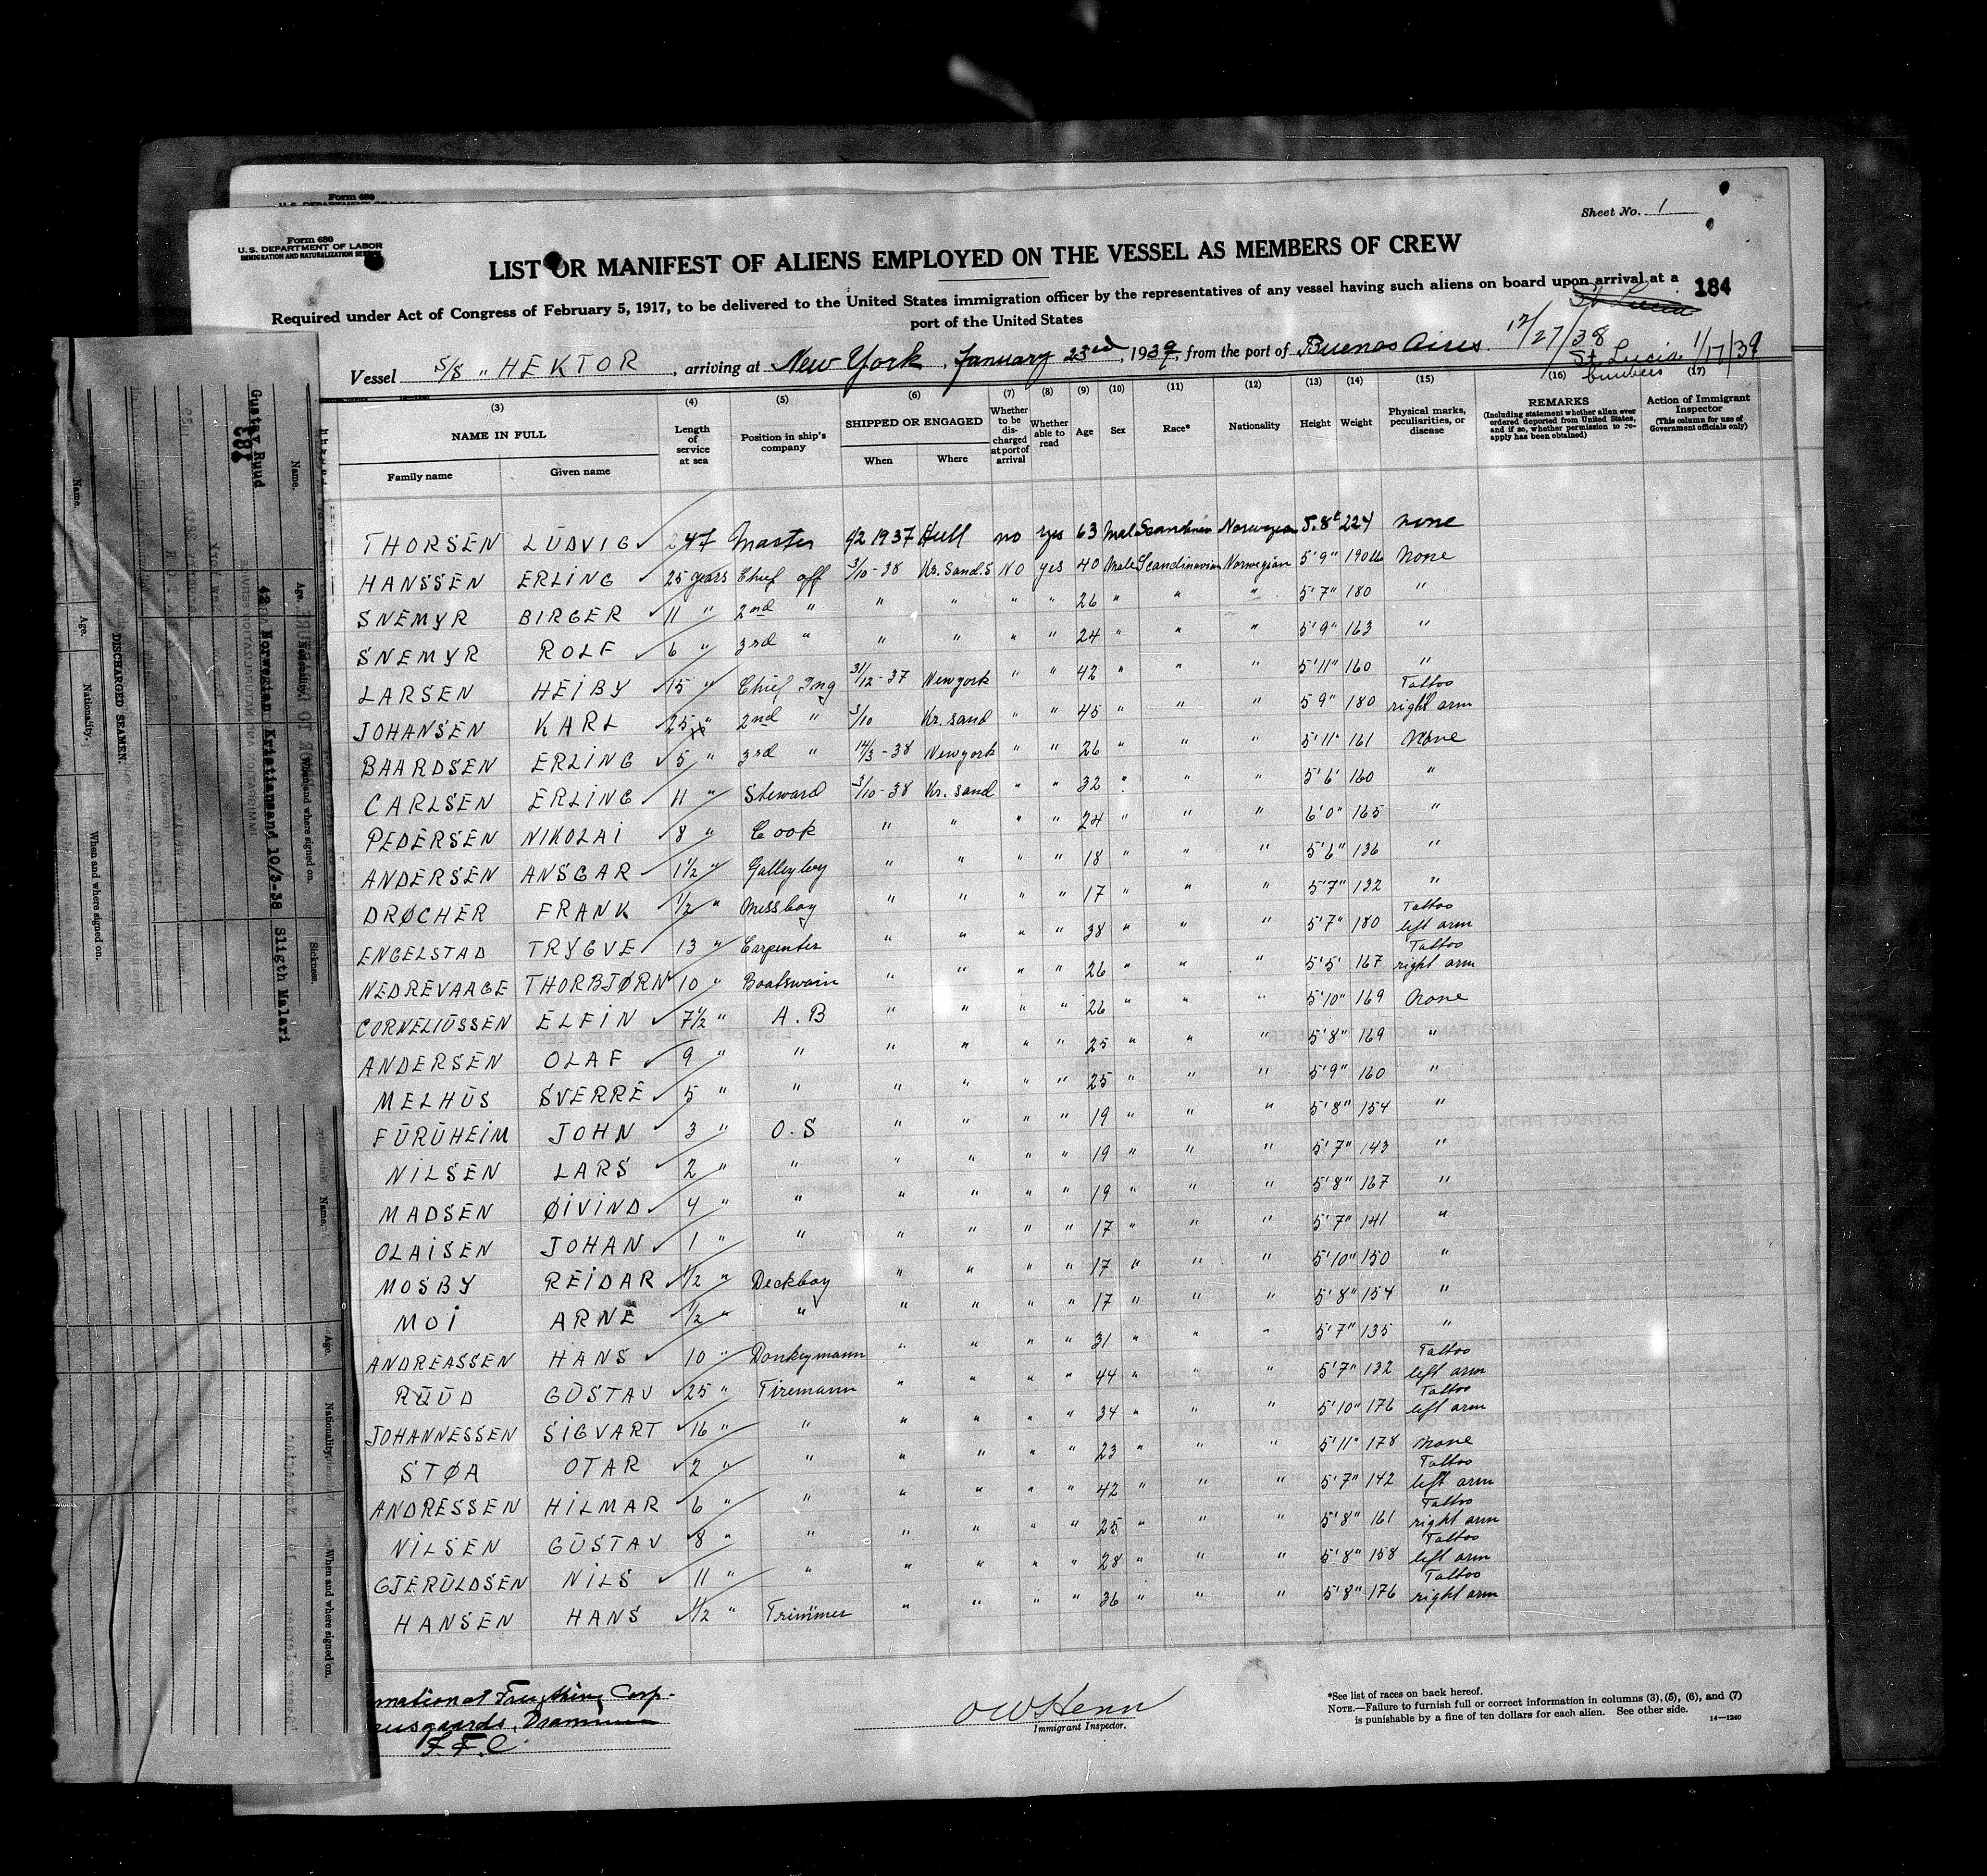 Form 680
Form 680
U. S. DEPARTMENT OF LABOR
IMMIGRATION AND NATURALIZATION SERVICE
Sheet No. 1
LIST OR MANIFEST OF ALIENS EMPLOYED ON THE VESSEL AS MEMBERS OF CREW
184
Required under Act of Congress of February 5, 1917, to be delivered to the United States immigration officer by the representatives of any vessel having such aliens on board upon arrival at a
port of the United States
St Lucia
Vessel S/S "HEKTOR, arriving at New York, January 23rd, 1939, from the port of Buenos Aires 12/27/38
St. Lucia 1/17/39
bunkers
(3) (4) (5) (6) (7) (8) (9) (10) (11) (12) (13) (14) (15) (16) (17)
NAME IN FULL
Family name Given name
Length of service at sea
Position in ship's company
SHIPPED OR ENGAGED
When Where
Whether to be discharged at port of arrival
Whether able to read
Age Sex Race* Nationality Height Weight
Physical marks, peculiarities, or disease
REMARKS
(Including statement whether alien ever ordered deported from United States, and if so, whether permission to reapply has been obtained)
Action of Immigrant Inspector
(This column for use of Government officials only)
THORSEN LŪDVIG 47 Master 1/2 1937 Hull no yes 63 Male Scandinav Norwegian 5.8" 224 none
HANSSEN ERLING 25 years Chief off 3/10-38 Kr. Sand.S NO yes 40 Male Scandinavian Norwegian 5'9" 190 lb None
SNEMYR BIRGER 11 " 2nd " " " " " 26 " " " 5'7" 180 "
SNEMYR ROLF 6 " 3rd " " " " " 24 " " " 5'9" 163 "
LARSEN HEIBY 15 " Chief Ing 31/12-37 New york " " 42 " " " 5'11" 160 "
JOHANSEN KARL 25 " 2nd " 3/10 Kr. sand " " 45 " " " 5 9" 180 Tattoo right arm
BAARDSEN ERLING 5 " 3rd " 14/3-38 New york " " 26 " " " 5'11" 161 None
CARLSEN ERLING 11 " Steward 3/10-38 Kr. sand " " 32 " " " 5'6' 160 "
PEDERSEN NIKOLAI 8 " Cook " " " " 24 " " " 6'0" 165 "
ANDERSEN ANSGAR 1½ " Galleyboy " " " " 18 " " " 5'6" 136 "
DRØCHER FRANK ½ " Messboy " " " " 17 " " " 5'7" 132 "
ENGELSTAD TRYGVE 13 " Carpenter " " " " 38 " " " 5'7" 180 Tattoo left arm
NEDREVAAGE THORBJØRN 10 " Boatswain " " " " 26 " " " 5'5' 167 Tattoo right arm
CORNELIŪSSEN ELFIN 7½ " A.B " " " " 26 " " " 5'10" 169 None
ANDERSEN OLAF 9 " " " " " " 25 " " " 5'8" 169 "
MELHŪS SVERRE 5 " " " " " " 25 " " " 5'9" 160 "
FŪRŪHEIM JOHN 3 " O.S " " " " 19 " " " 5'8" 154 "
NILSEN LARS 2 " " " " " " 19 " " " 5'7" 143 "
MADSEN ØIVIND 4 " " " " " " 19 " " " 5'8" 167 "
OLAISEN JOHAN 1 " " " " " " 17 " " " 5'7" 141 "
MOSBY REIDAR ½ " Deckboy " " " " 17 " " " 5'10" 150 "
MOI ARNE ½ " " " " " " 17 " " " 5'8" 154 "
ANDREASSEN HANS 10 " Donkeymann " " " " 31 " " " 5'7" 135 "
RŪŪD GŪSTAV 25 " Firemann " " " " 44 " " " 5'7" 132 Tattoo left arm
JOHANNESSEN SIGVART 16 " " " " " " 34 " " " 5'10" 176 Tattoo left arm
STØA OTAR 2 " " " " " " 23 " " " 5'11" 178 None
ANDRESSEN HILMAR 6 " " " " " " 42 " " " 5'7" 142 Tattoo left arm
NILSEN GŪSTAV 8 " " " " " " 25 " " " 5'8" 161 Tattoo right arm
GJERŪLDSEN NILS 11 " " " " " " 28 " " " 5'8" 158 Tattoo left arm
HANSEN HANS ½ " Trimmer " " " " 36 " " " 5'8" 176 Tattoo right arm
O W Henn
Immigrant Inspector.
*See list of races on back hereof.
NOTE.—Failure to furnish full or correct information in columns (3), (5), (6), and (7)
is punishable by a fine of ten dollars for each alien. See other side.
14—1240
F.F.C.
Name. Age. Nationality. When and where signed on. Sickness.
382
Gustav Ruud 42 Norwegian Kristiansand 10/3-38 Sligth Malari
DISCHARGED SEAMEN.
Name. Age. Nationality. When and where signed on.
Name. Age. Nationality. When and where signed on.